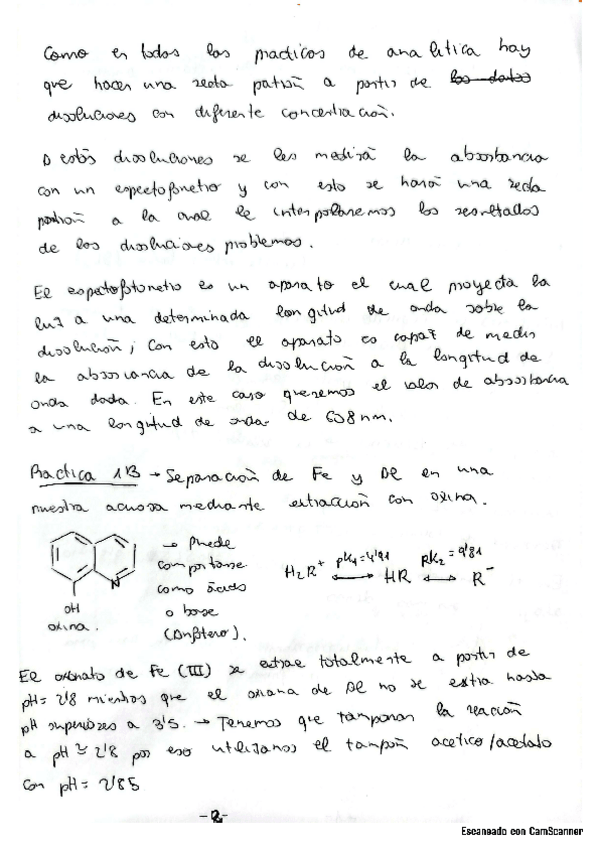 Como en todas las practicas de analitica hay
que hacer una recta patrón a partir de los datos
disoluciones con diferente concentración.
A estás disoluciones se les medirá la absorbancia
con un espectofonetro y con esto se hará una recta
patrón a la cual le interpolaremos los resultados
de las disoluciones problemas.
El espectofotonetro es un aparato el cual proyecta la
luz a una determinada longitud de onda sobre la
disolución, con esto el aparato es capaz de medir
la absorvancia de la disolución a la longitud de
onda dada. En este caso queremos el valor de absorbancia
a una longitud de onda de 608nm.
Practica 1B → Separación de Fe y Al en una
muestra acuosa mediante extracción con oxina.
→ Puede
comportarse
como ácido
o base
(Anfótero).
N
OH
oxina.
H₂R⁺ pK₁=4'91 HR pK₂=9'81 R⁻
El oxinato de Fe (III) se extrae totalmente a partir de
pH= 2'8 mientras que el oxiana de Al no se extra hasta
pH superiores a 3'5. → Tenemos que tamponar la reacción
a pH ≅ 2'8 por eso utilizamos el tampón acetico/acetato
con pH= 2'85
-2-
Escaneado con CamScanner